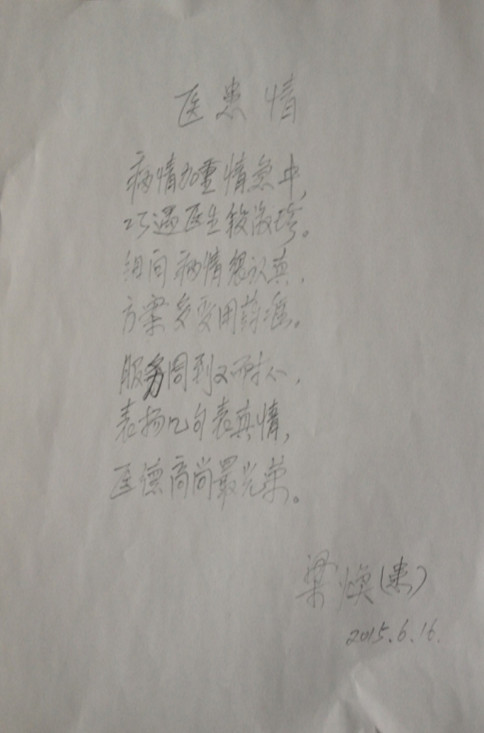 医患情
病情加重情急中,
巧遇医生段淑珍。
细问病情很认真,
方案多变用药
服务周到又耐心,
表扬几句表真情,
医德高尚最光荣。
梁焕(患)
2015.6.16.